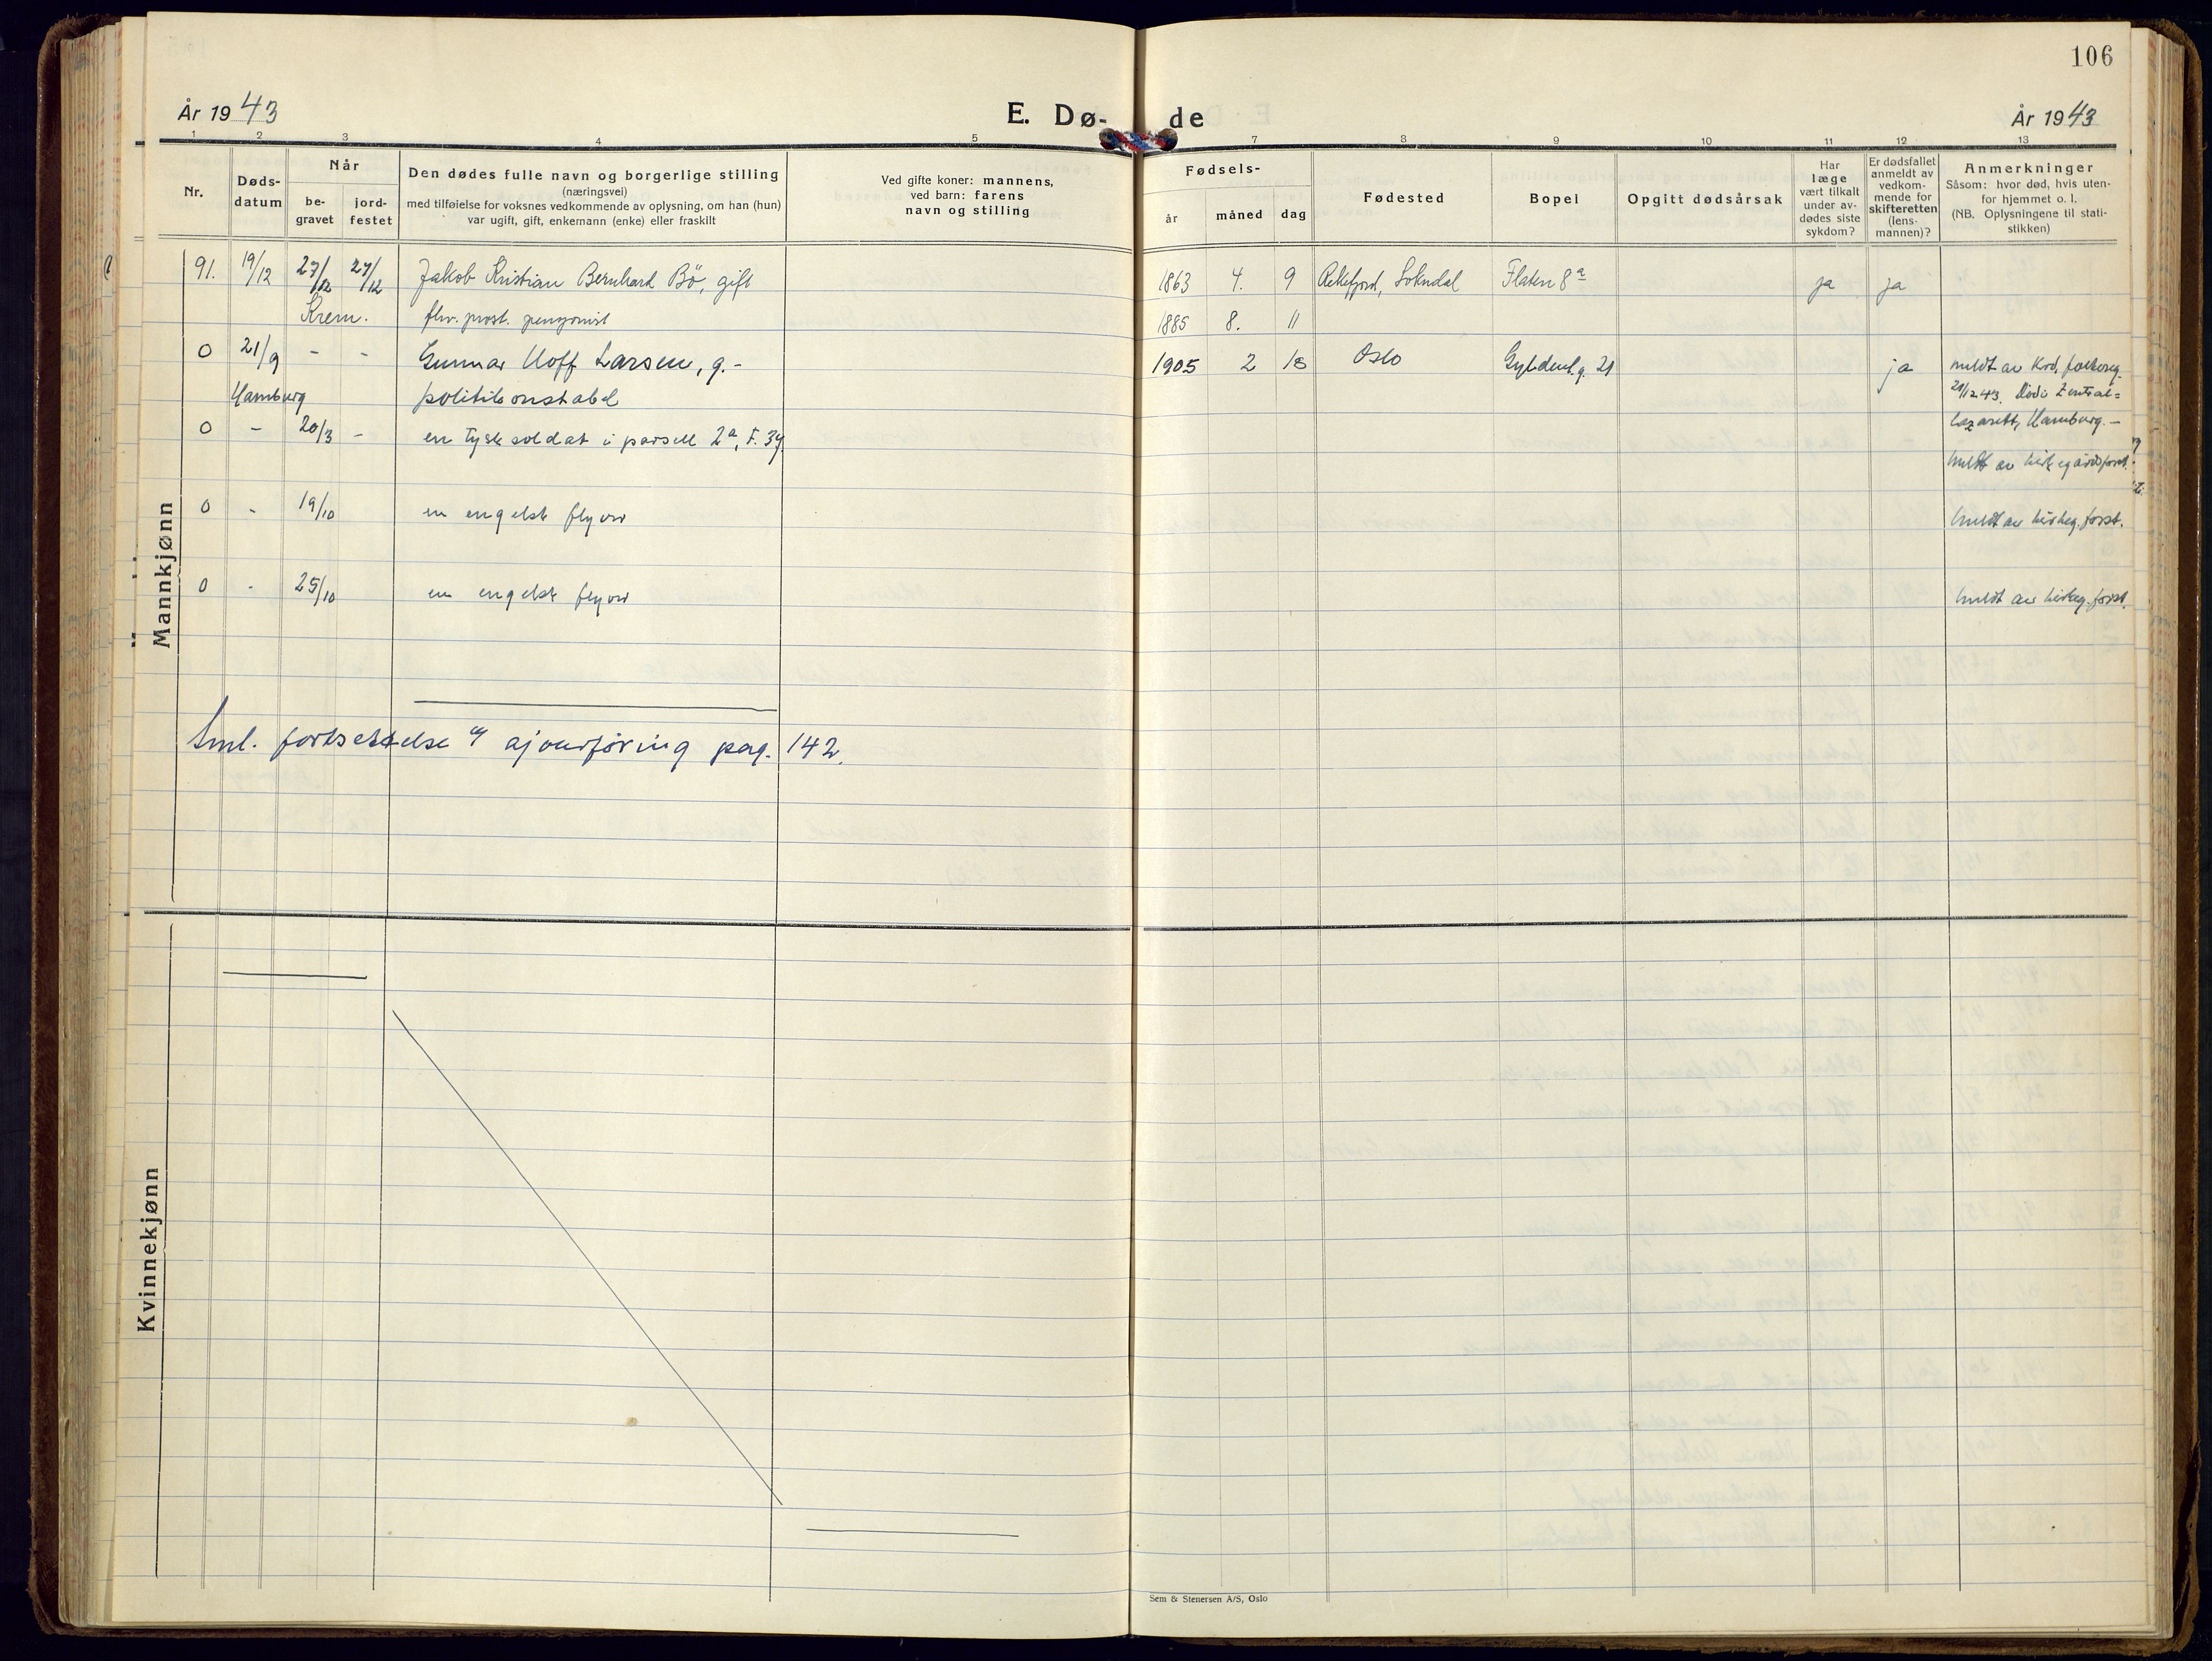 106
År 1943
E. Dø- de
År 1943
1 2 3 4 5 7 8 9 10 11 12 13
Nr.
Døds-
datum
Når
be-
gravet
jord-
festet
Den dødes fulle navn og borgerlige stilling
(næringsvei)
med tilføielse for voksnes vedkommende av oplysning, om han (hun)
var ugift, gift, enkemann (enke) eller fraskilt
Ved gifte koner: mannens,
ved barn: farens
navn og stilling
Fødsels-
år
måned
dag
Fødested
Bopel
Opgitt dødsårsak
Har
læge
vært tilkalt
under av-
dødes siste
sykdom?
Er dødsfallet
anmeldt av
vedkom-
mende for
skifteretten
(lens-
mannen)?
Anmerkninger
Såsom: hvor død, hvis uten-
for hjemmet o. l.
(NB. Oplysningene til stati-
stikken)
Mannkjønn
91. 19/12 27/12 27/12 Jakob Kristian Bernhard Bö, gift 1863 4. 9 Rekefjord, Sokndal Flaten 8a ja ja
Krem. fhv. post. pensjonist 1885 8. 11
0 21/9 - - Gunnar Hoff Larsen, g. - 1905 2 18 Oslo Gyldenl.g. 21 ja meldt av Krd. folkereg.
Hamburg politikonstabel 21/12 43. Död i Zentral=
lazarett, Hamburg. -
0 - 20/3 - en tysk soldat i parsell 2a, F. 39. meldt av kirkegårdsforst.
0 - 19/10 en engelsk flyver meldt av kirkeg. forst.
0 - 25/10 en engelsk flyver meldt av kirkeg. forst.
Sml. fortsettelse og ajourføring pag. 142.
Kvinnekjønn
Sem & Stenersen A/S, Oslo